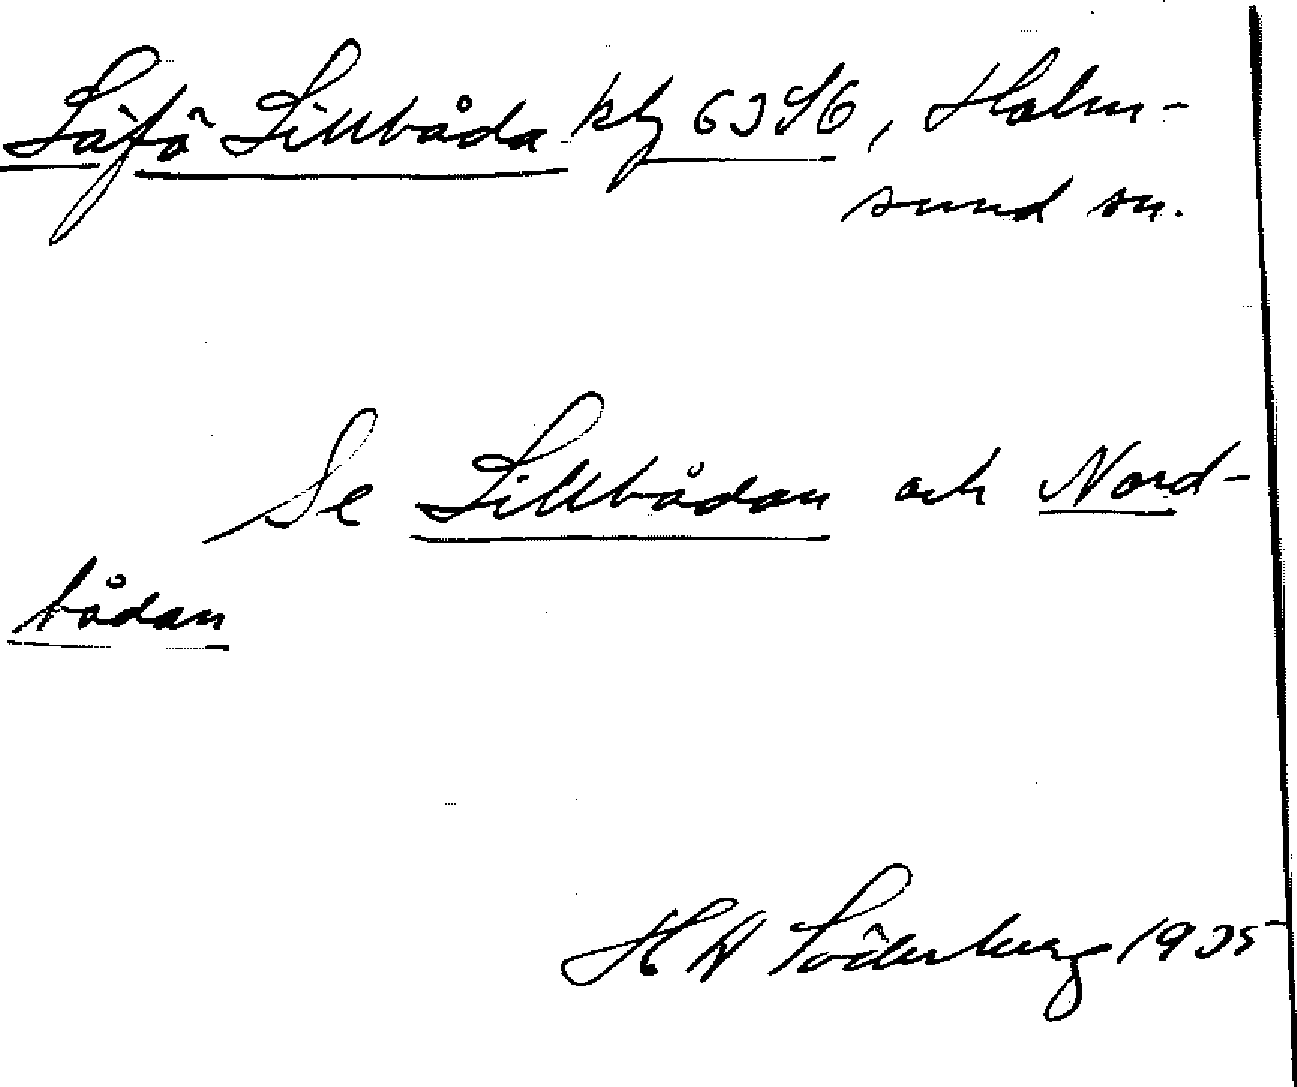 Låfö Lillbåda klj 6396, Holm-
sund sn.
Se Lillbådan och Nord-
bådan
H W Söderberg 1935